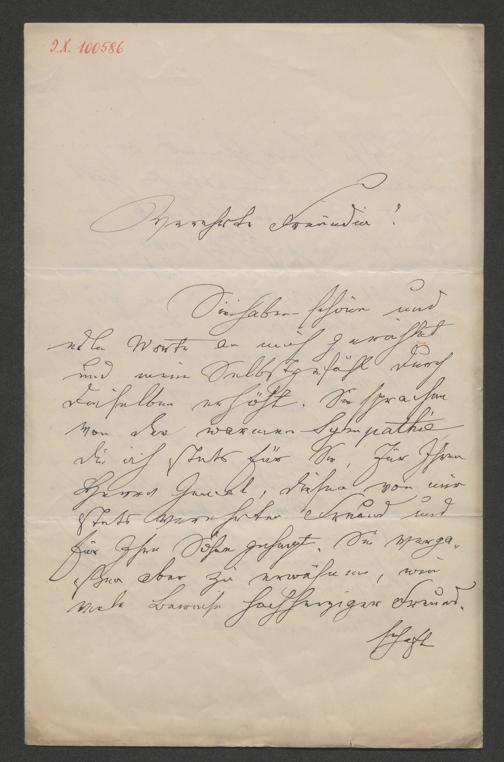 I.N. 100586
Verehrte Freundin!
Sie haben schöne und
edle Worte an mich gerichtet
und mein Selbstgefühl durch
dieselben erhöht. Sie sprachen
von der warmen Sympathie
die ich stets für Sie, für Ihren
Herrn Gemal, diesen von mir
stets verehrten Freund und
für Ihre Söhne gehegt. Sie verga-
ßen aber zu erwähnen, wie
viele Beweise hochherziger Freund-
schaft